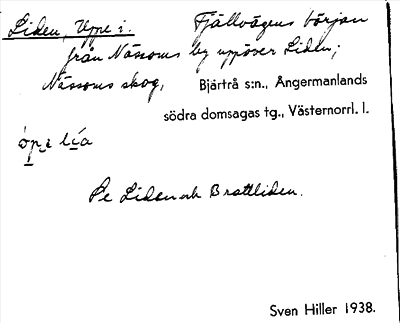 Liden, Uppe i. Fjällvägens början
från Nässoms by uppöver Liden;
Nässoms skog, Bjärtrå s:n., Ångermanlands
södra domsagas tg., Västernorrl. l.
lia
Se Liden och Brattliden.
Sven Hiller 1938.